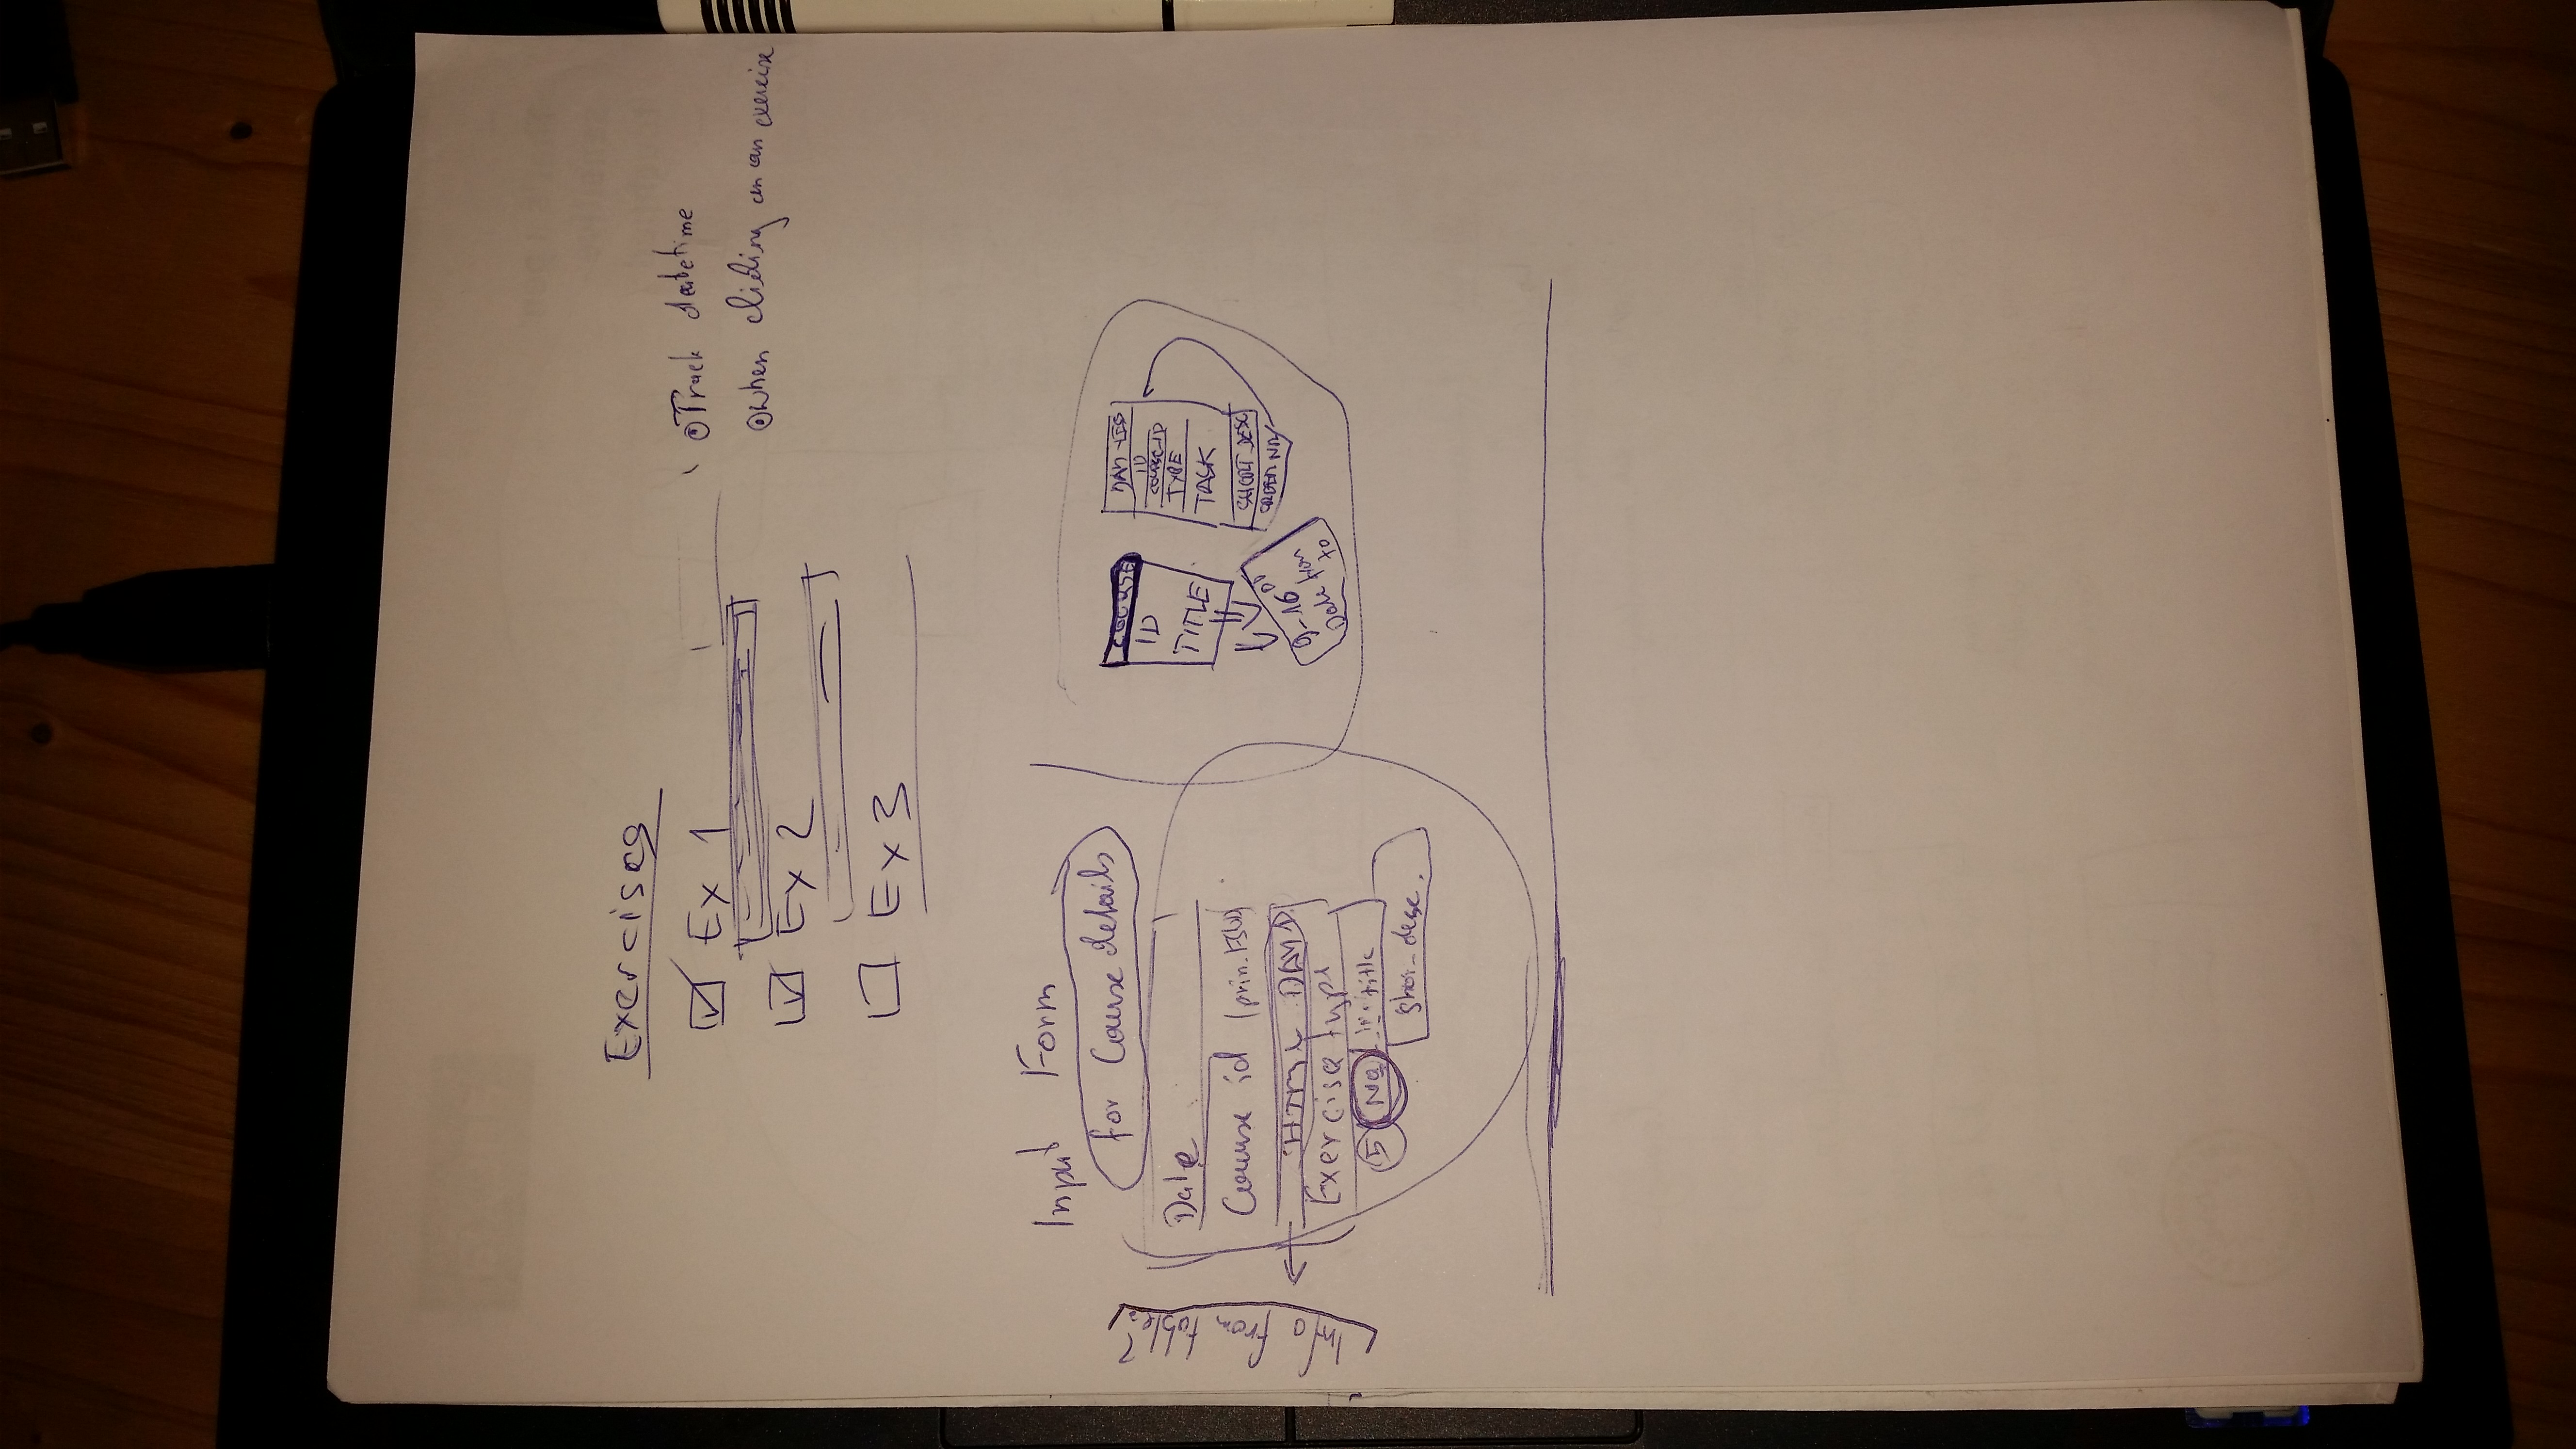 Exercises
Ex 1
Ex 2
Ex 3
Track datetime
When cliding an an exercise
Input Form
for Course details
Date
Course id
HTML
Exercise type
5 No title
shor_desc.
Info from table 2
COURSE
ID
TITLE
9-16 00
Date from
to
ID
COURSE_ID
TYPE
TASK
SHORT_DESC
ORDER NR